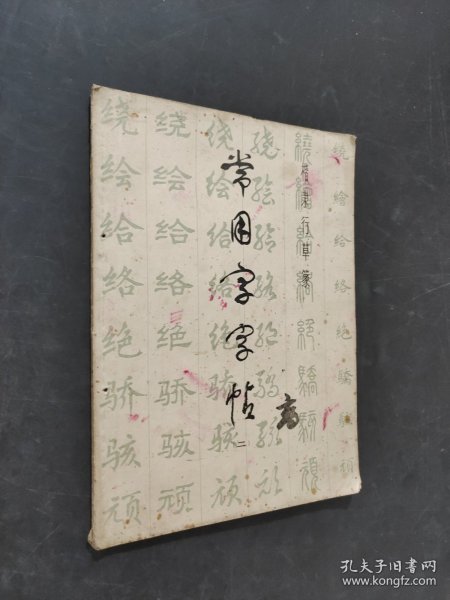 常用字字帖
二
楷隶行草篆
绕绘给络绝骄骇顽
绕绘给络绝骄骇顽
绕绘给络绝骄骇顽
绕绘给络绝骄骇顽
繞繪給絡絕驕駭頑
孔夫子旧书网
www.kongfz.com